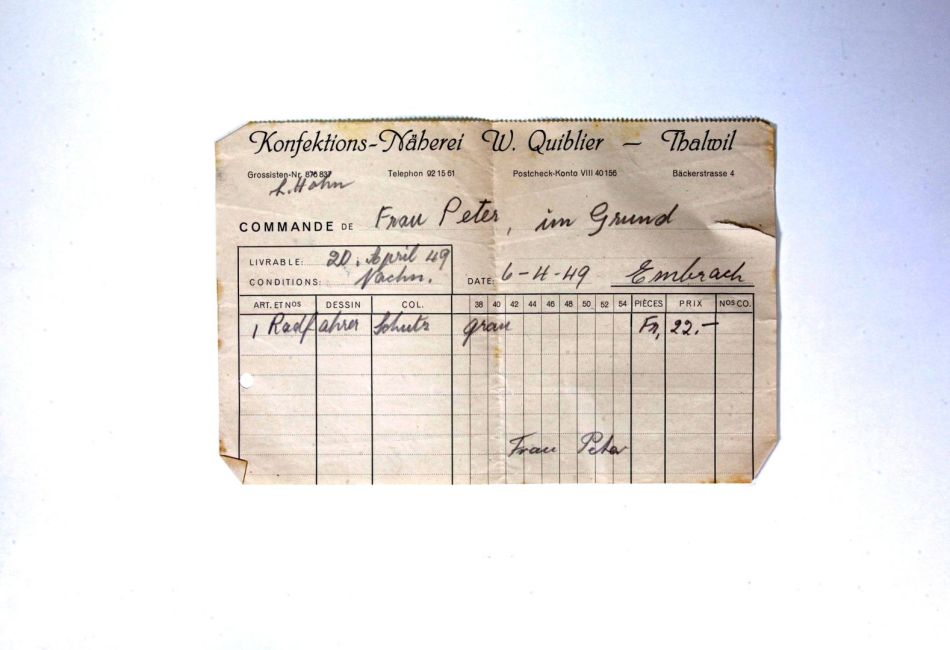 Konfektions-Näherei W. Quiblier — Thalwil
Grossisten-Nr. 876 837 Telephon 92 15 61 Postcheck-Konto VIII 40 156 Bäckerstrasse 4
COMMANDE DE Frau Peter, im Grund
LIVRABLE: 20. April 49
CONDITIONS: Nachn. DATE: 6-4-49 Embrach
ART. ET NOS DESSIN COL. 38 40 42 44 46 48 50 52 54 PIÈCES PRIX NOS CO.
1 Radfahrer Schutz grau Fr. 22.—
Frau Peter